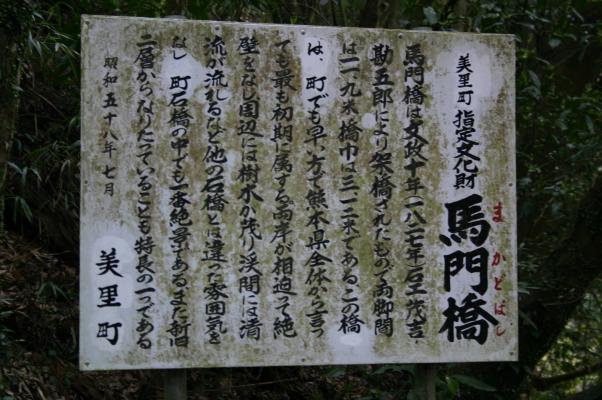 美里町 指定文化財
馬門橋
まかどばし
馬門橋は文政十年(一八二七年)石工茂吉
勘五郎により架橋されたもので両脚間
は二、九米橋巾は三一二米である。この橋
は、町でも早い方で熊本県全体から言っ
ても最も初期に属する。両岸が相迫って絶
壁をなし周辺には樹木か茂り渓間には清
流が流れるなど他の石橋とは違った雰囲気を
なし 町石橋の中でも一番絶景である。また新旧
二層からなりたっていることも特長の一つである
昭和五十八年七月
美里町